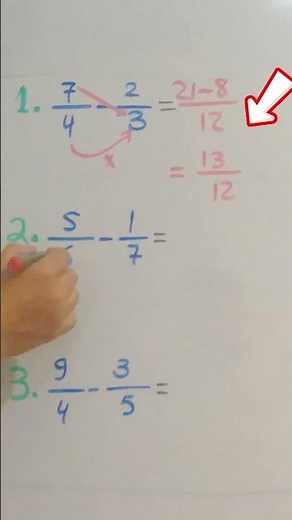 1. 7/4 - 2/3 = 21-8/12
x
= 13/12
2. 5/ - 1/7 =
3. 9/4 - 3/5 =